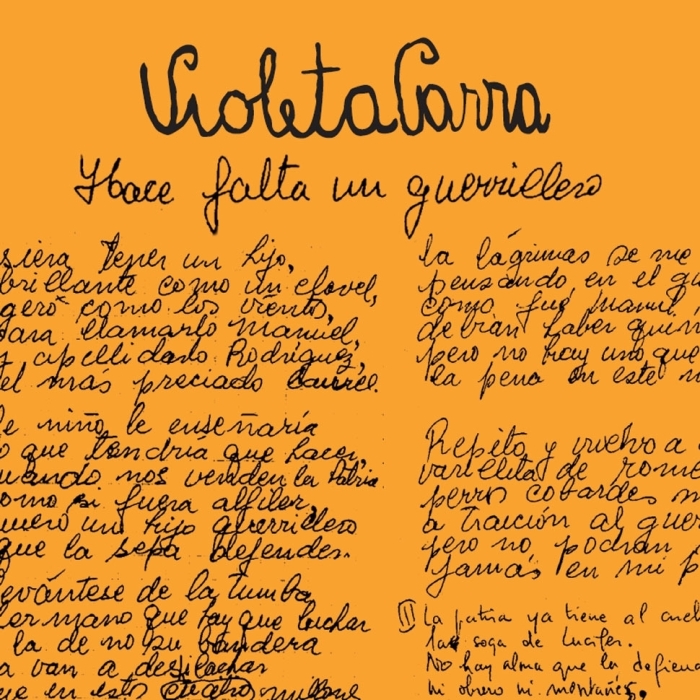 Violeta Parra
Hace falta un guerrillero
siera tener un hijo,
brillante como un clavel,
gero como los vientos,
para llamarlo Manuel,
y apellidarlo Rodríguez,
el más preciado laurel.
e niño le enseñaría
o que tendría que hacer,
uando nos venden la Patria
omo si fuera alfiler,
uiero un hijo guerrillero
que la sepa defender.
evántese de la tumba
hermano que hay que luchar
la de no su bandera
a van a desilachar
ue en esto
la lágrimas se me
pensando en el gu
como fue Manuel
debían haber quin
pero no hay uno que
la pena en este m
Repito y vuelvo a
varillita de rome
perros cobardes m
a traición al guer
pero no podrán
jamás en mi p
II La patria ya tiene al cuel
la soga de Lucifer.
No hay alma que la defiend
ni obrero ni montañés,